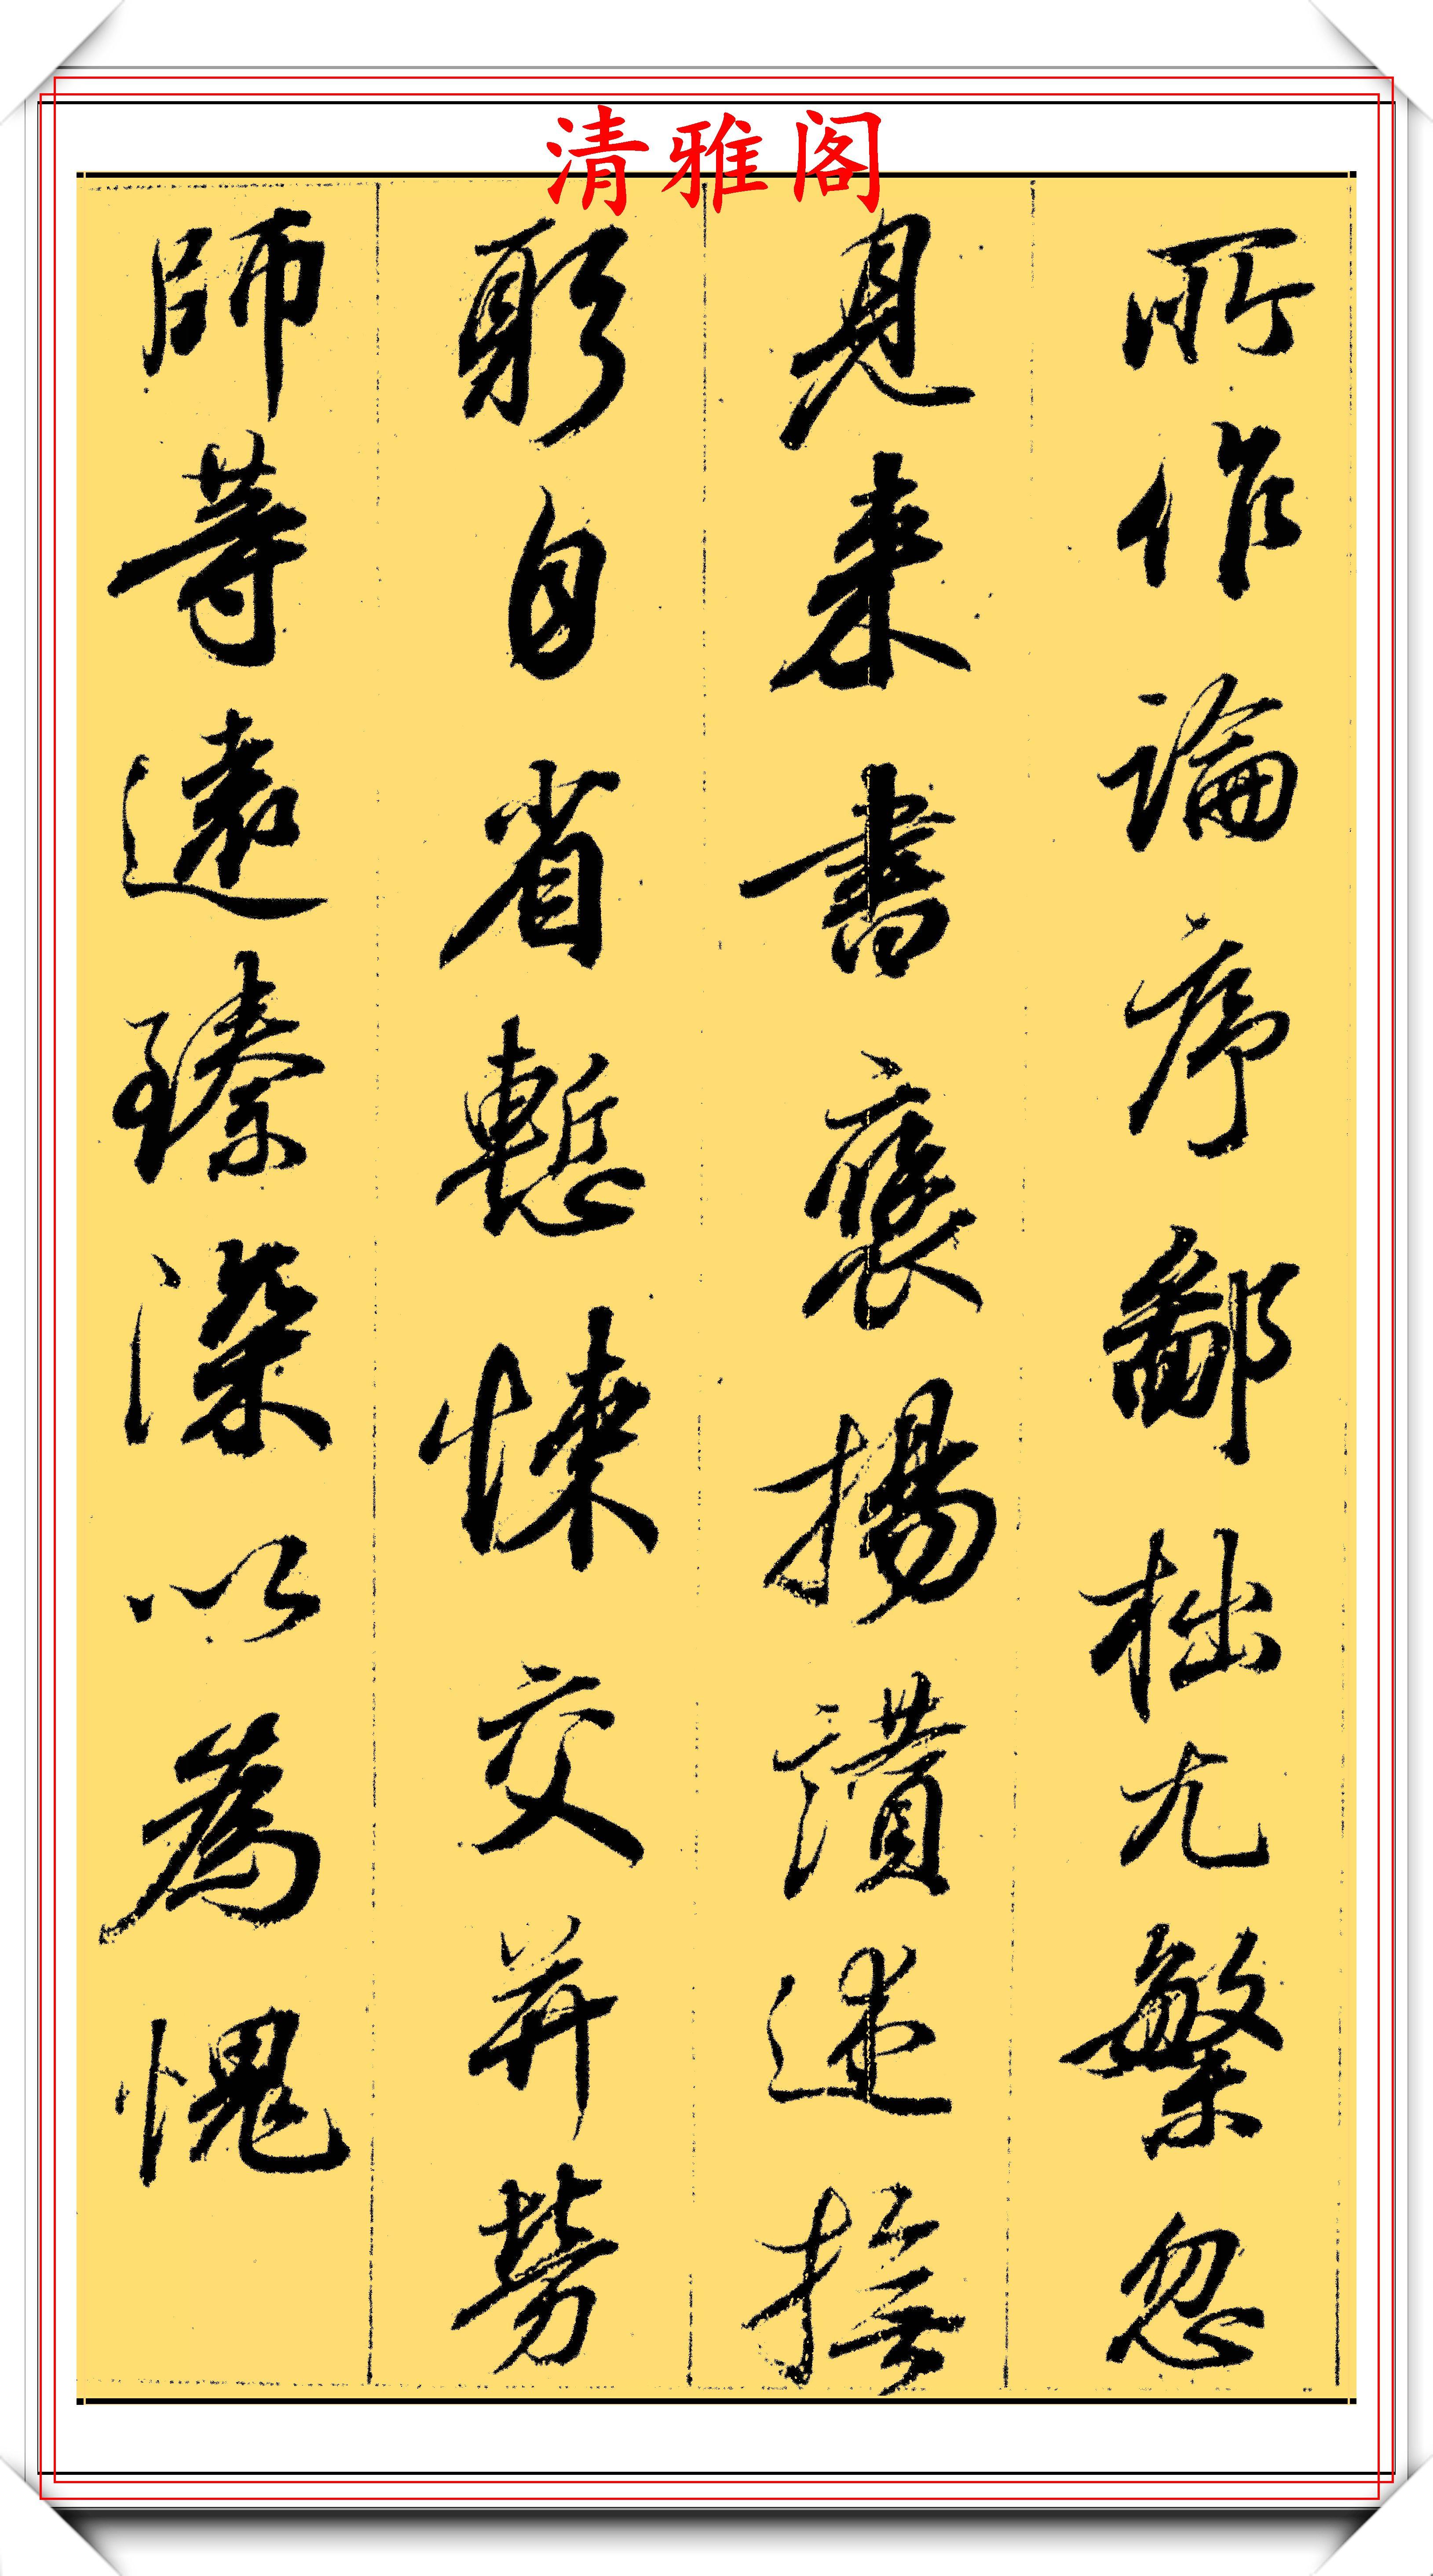 清雅阁
所作論序鄙拙尤繁忽
見来書褒揚讃述撫
躬自省慙悚交并勞
師等遠臻深以為愧